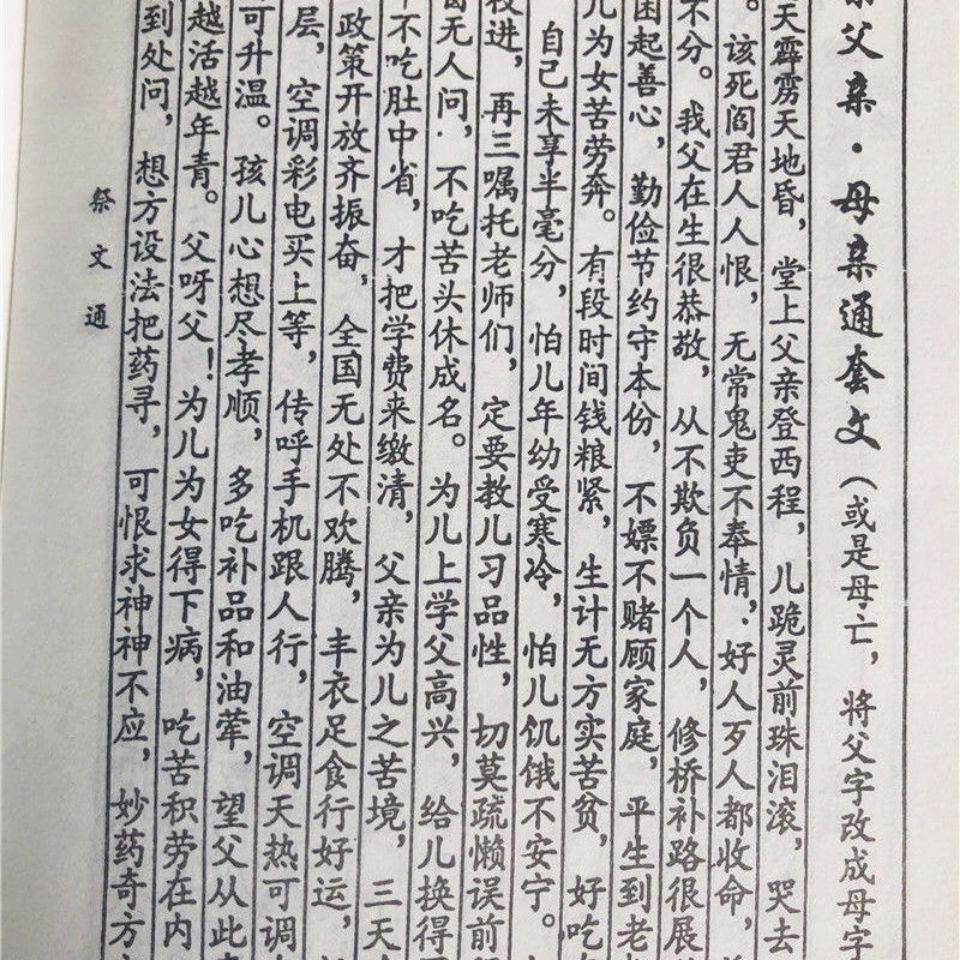 父亲·母亲通套文(或是母亡,将父字改成母字
天霹雳天地昏,堂上父亲登西程,儿跪灵前珠泪滚,哭去
。该死阎君人人恨,无常鬼吏不奉情,好人歹人都收命,
不分。我父在生很恭敬,从不欺负一个人,修桥补路很展
困起善心,勤俭节约守本份,不嫖不赌顾家庭,平生到老
儿为女苦劳奔。有段时间钱粮紧,生计无方实苦贫,好吃
自己未享半毫分,怕儿年幼受寒冷,怕儿饥饿不安宁。
校进,再三嘱托老师们,定要教儿习品性,切莫疏懒误前
窗无人问,不吃苦头休成名。为儿上学父高兴,给儿换得
不吃肚中省,才把学费来缴清,父亲为儿之苦境,三天
政策开放齐振奋,全国无处不欢腾,丰衣足食行好运,
层,空调彩电买上等,传呼手机跟人行,空调天热可调
可升温。孩儿心想尽孝顺,多吃补品和油荤,望父从此
越活越年青。父呀父!为儿为女得下病,吃苦积劳在内
到处问,想方设法把药寻,可恨求神神不应,妙药奇方
祭文通